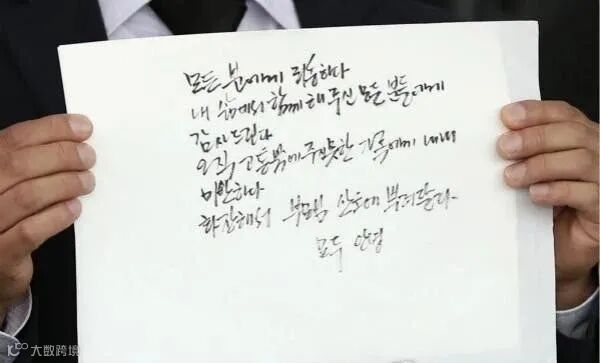 모든 분에게 죄송하다
내 삶에서 함께 해 주신 모든 분들에게
감사드린다
오직 고통밖에 주지 못한 가족에게 내내
미안하다
화장해서 부모님 산소에 뿌려달라
모두 안녕
大数跨境